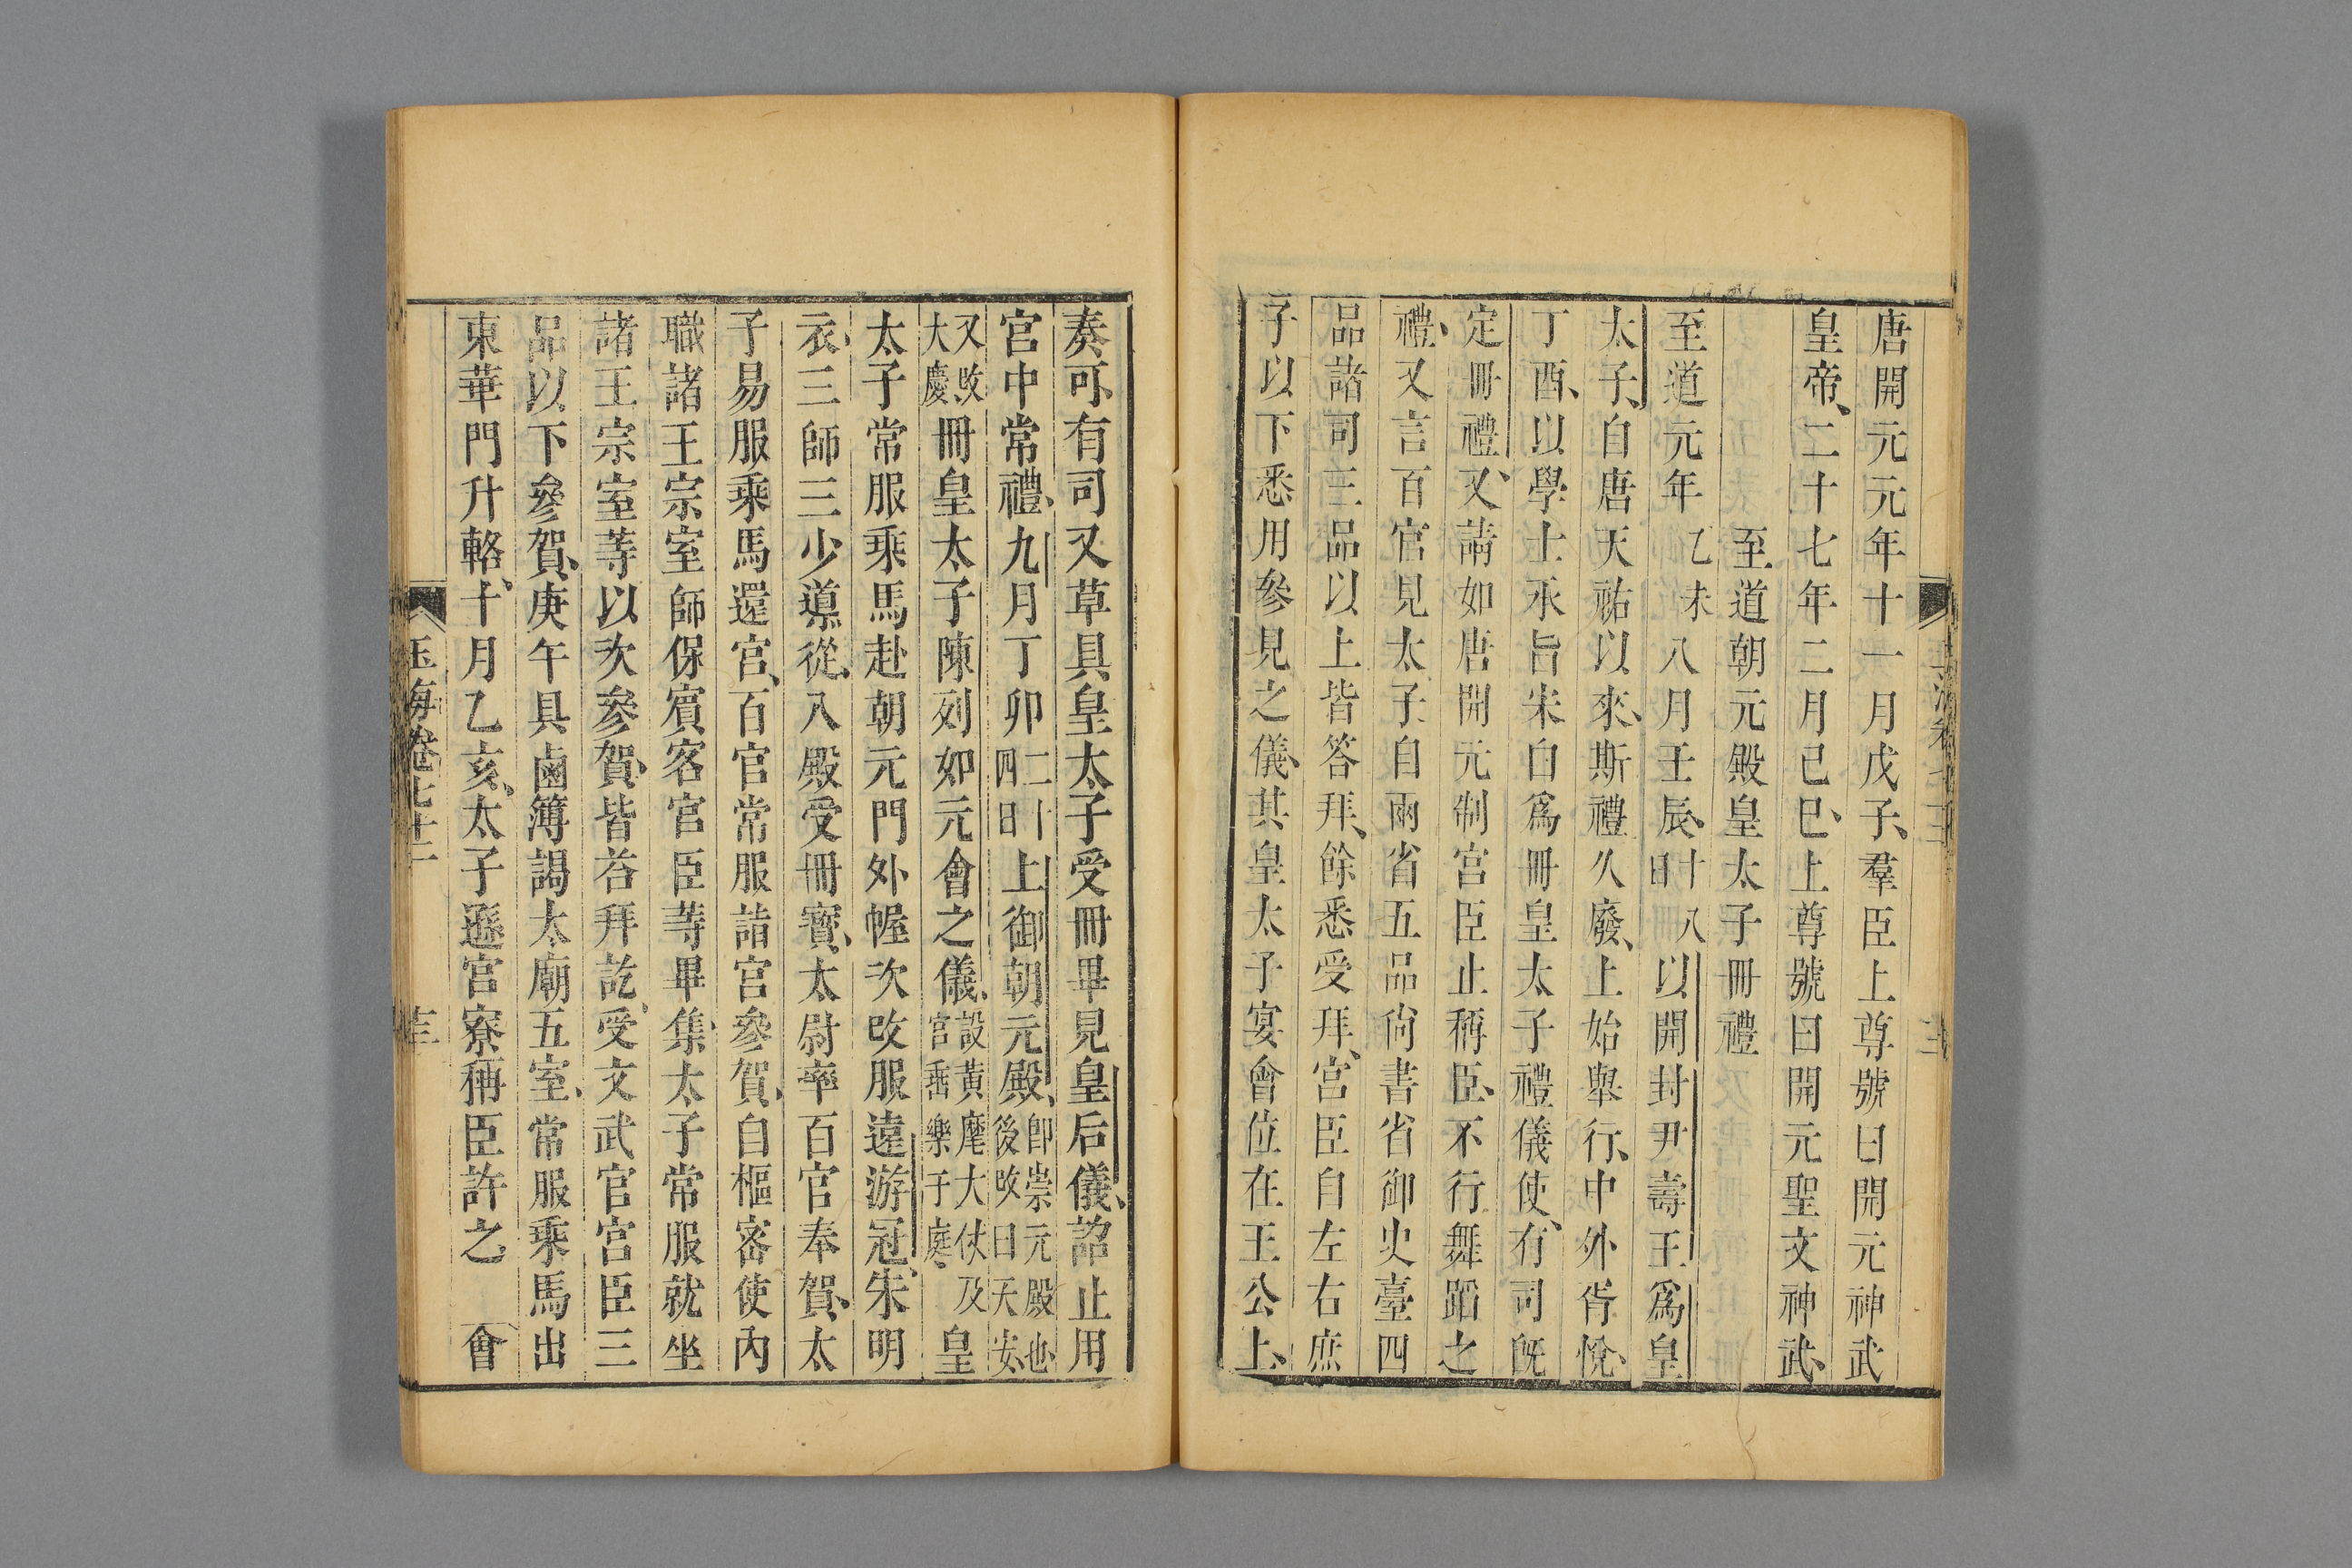 唐開元元年十一月戊子羣臣上尊號曰開元神武
皇帝二十七年二月己巳上尊號曰開元聖文神武
至道朝元殿皇太子冊禮
至道元年乙未八月壬辰十八日以開封尹壽王爲皇
太子自唐天祐以來斯禮久廢上始舉行中外胥悅
丁酉以學士承旨宋白爲冊皇太子禮儀使有司既
定冊禮又請如唐開元制宮臣止稱臣不行舞蹈之
禮又言百官見太子自兩省五品尚書省御史臺四
品諸司三品以上皆答拜餘悉受拜宮臣自左右庶
子以下悉用參見之儀其皇太子宴會位在王公上
奏可有司又草具皇太子受冊畢見皇后儀詔止用
宮中常禮九月丁卯二十四日上御朝元殿卽崇元殿也後攺曰天安
又攺大慶冊皇太子陳列如元會之儀設黃麾大仗及宮垂樂于庭皇
太子常服乘馬赴朝元門外幄次攺服遠游冠朱明
衣三師三少導從入殿受冊寶太尉率百官奉賀太
子易服乘馬還宮百官常服詣宮參賀自樞密使內
職諸王宗室師保賓客宮臣等畢集太子常服就坐
諸王宗室等以次參賀皆荅拜訖受文武官宮臣三
品以下參賀庚午具鹵簿謁太廟五室常服乘馬出
東華門升輅十月乙亥太子遜宮寮稱臣許之 會
玉海卷七十二